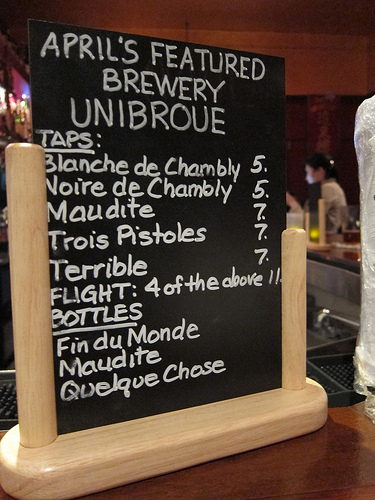 APRIL'S FEATURED
BREWERY
UNIBROUE
TAPS:
Blanche de Chambly 5.
Noire de Chambly 5.
Maudite 7.
Trois Pistoles 7.
Terrible 7.
FLIGHT: 4 of the above 11.
BOTTLES
Fin du Monde
Maudite
Quelque Chose